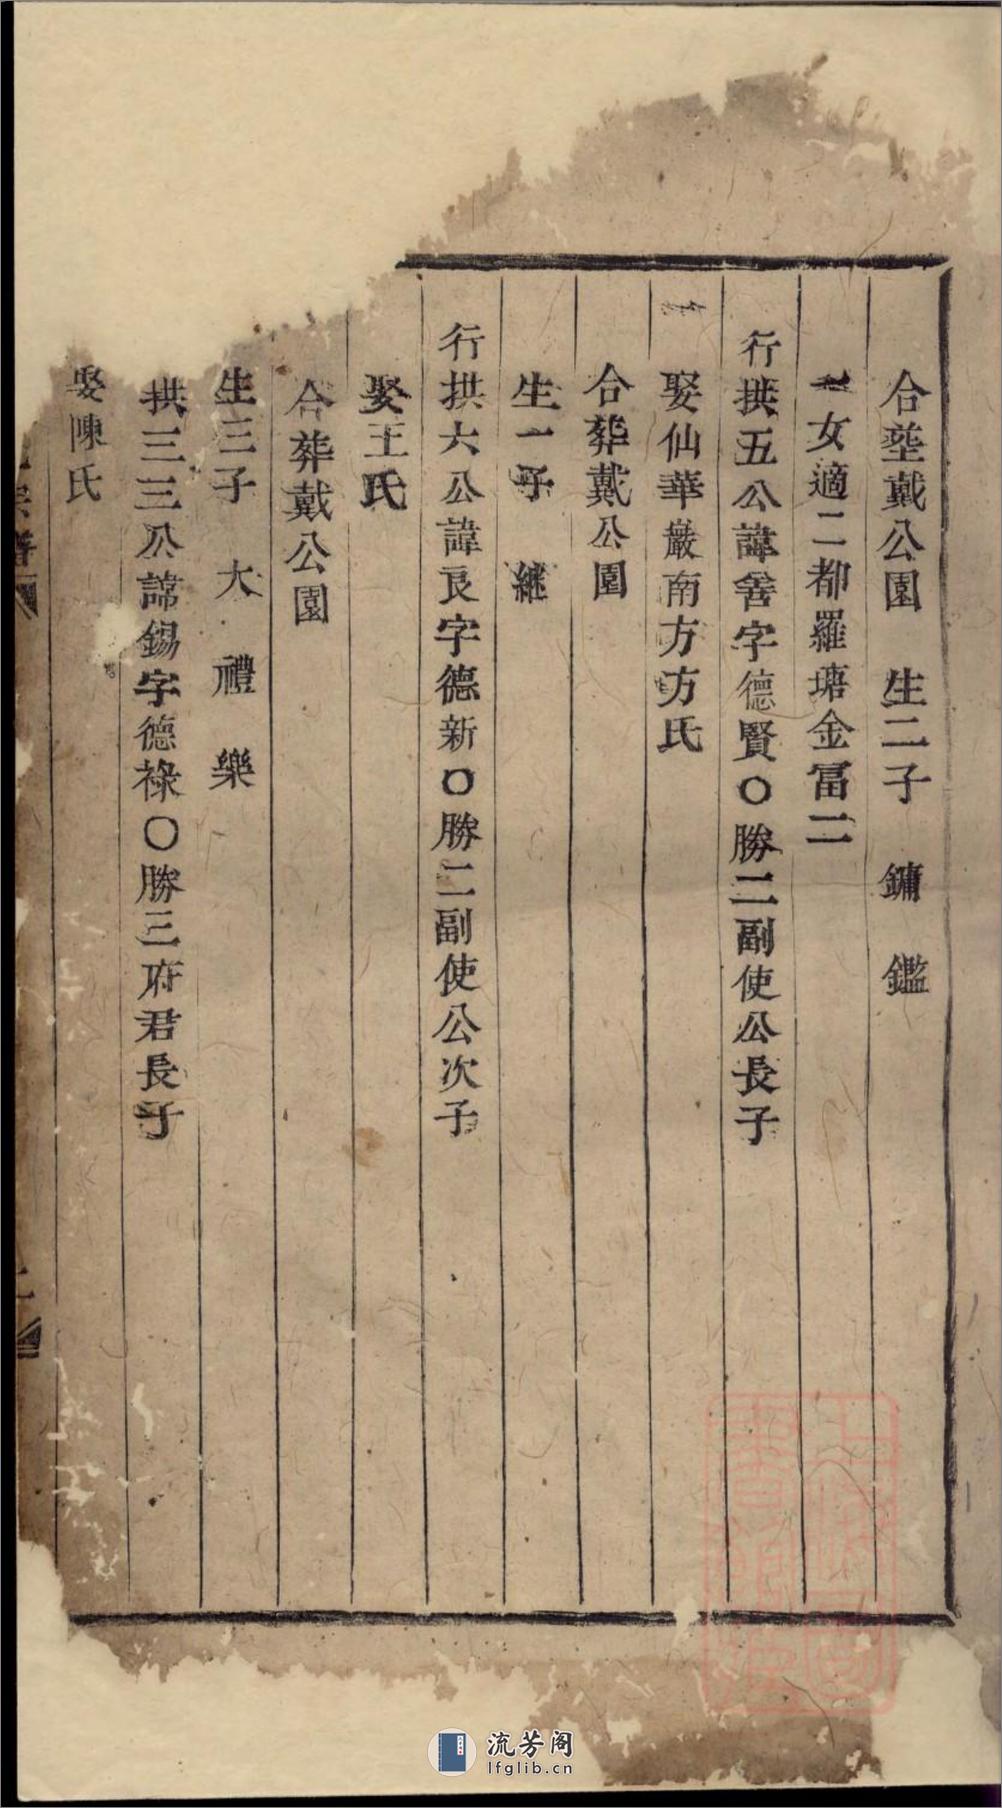 合塟戴公園　生二子　鏞　鑑
一女適二都羅塘金冨二
行拱五公諱善字德賢〇勝二副使公長子
娶仙華巖南方方氏
合葬戴公園
生一子　継
行拱六公諱良字德新〇勝二副使公次子
娶王氏
合葬戴公園
生三子　大　禮　樂
拱三三公諱錫字德祿〇勝三府君長子
娶陳氏
流芳阁
lfglib.cn